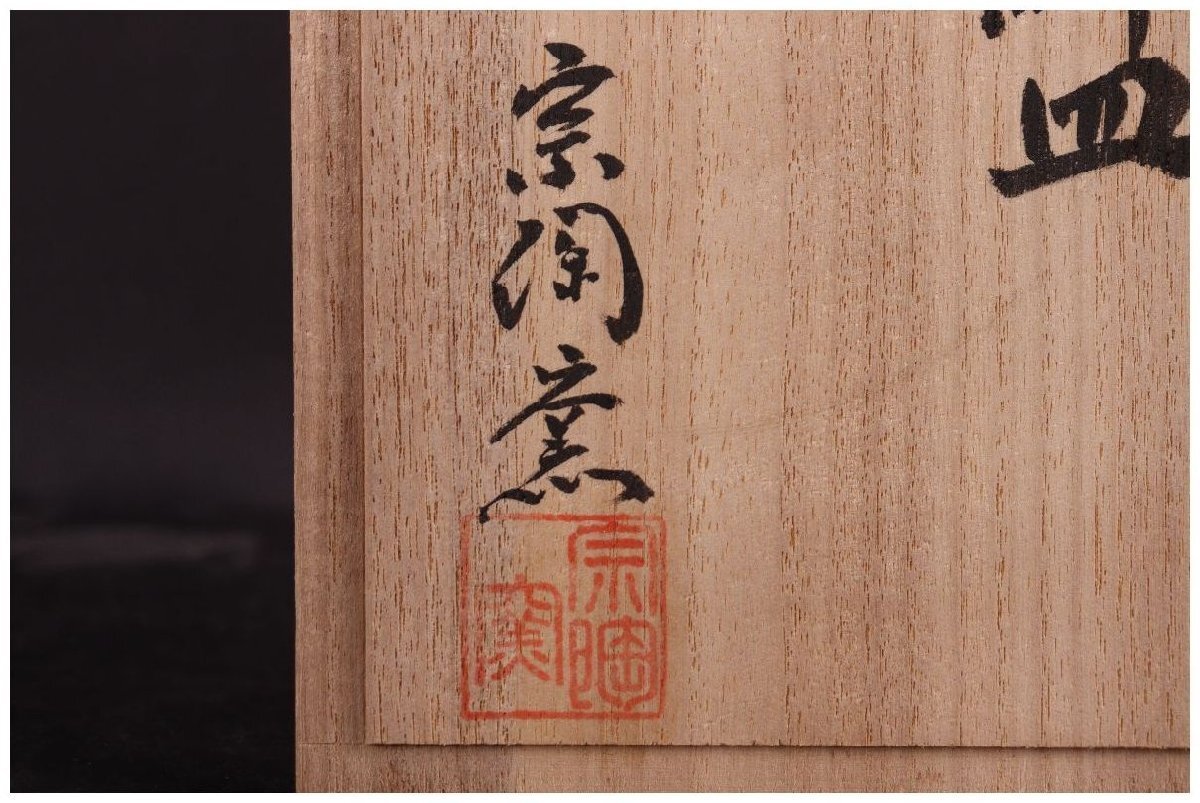 皿
宗陶窯
宗陶
窯